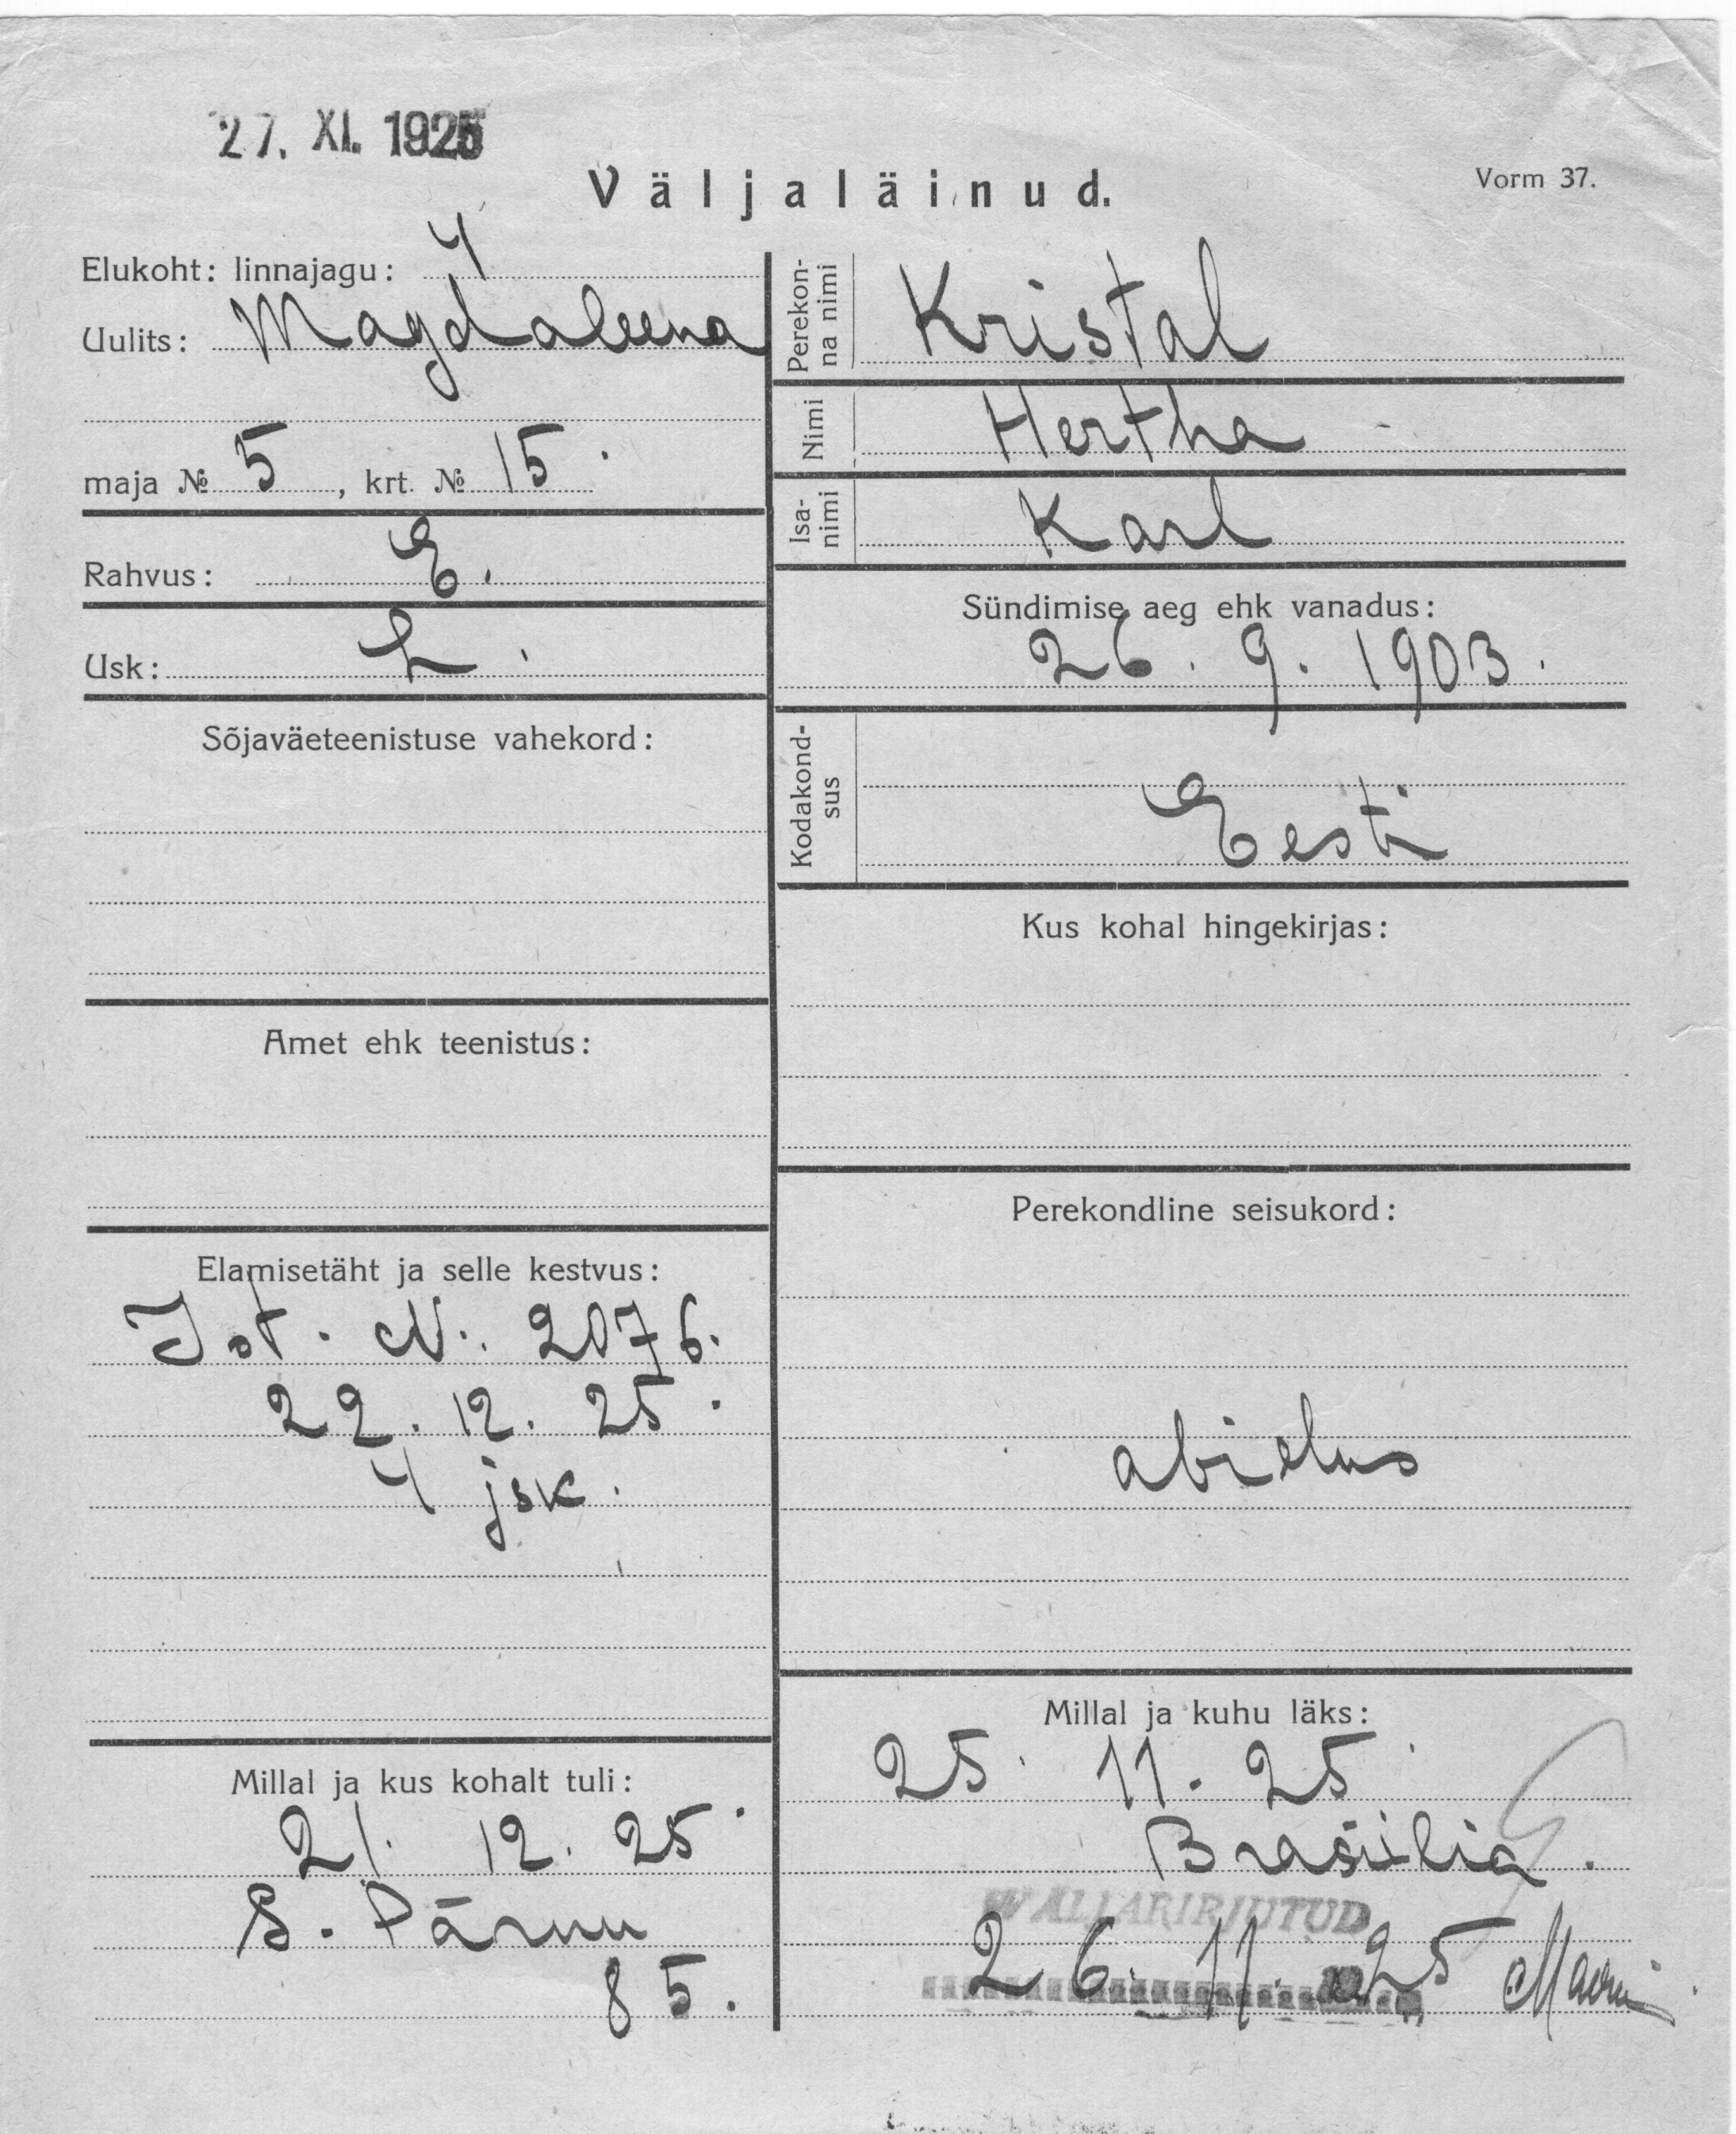 27. XI. 1925
Väljaläinud.
Vorm 37.
Elukoht: linnajagu: 4
Uulits: Magdaleena
maja № 5, krt. № 15.
Rahvus: E.
Usk: L.
Sõjaväeteenistuse vahekord:
Amet ehk teenistus:
Elamisetäht ja selle kestvus:
Ist. N. 2076.
22. 12. 25.
4 jsk.
Millal ja kus kohalt tuli:
21. 12. 25.
S. Pärnu
85.
Perekonna nimi
Kristal
Nimi
Hertha
Isanimi
Karl
Sündimise aeg ehk vanadus:
26. 9. 1903.
Kodakondsus
Eesti
Kus kohal hingekirjas:
Perekondline seisukord:
abielus
Millal ja kuhu läks:
25. 11. 25.
Brasiilia.
26. 11. 25